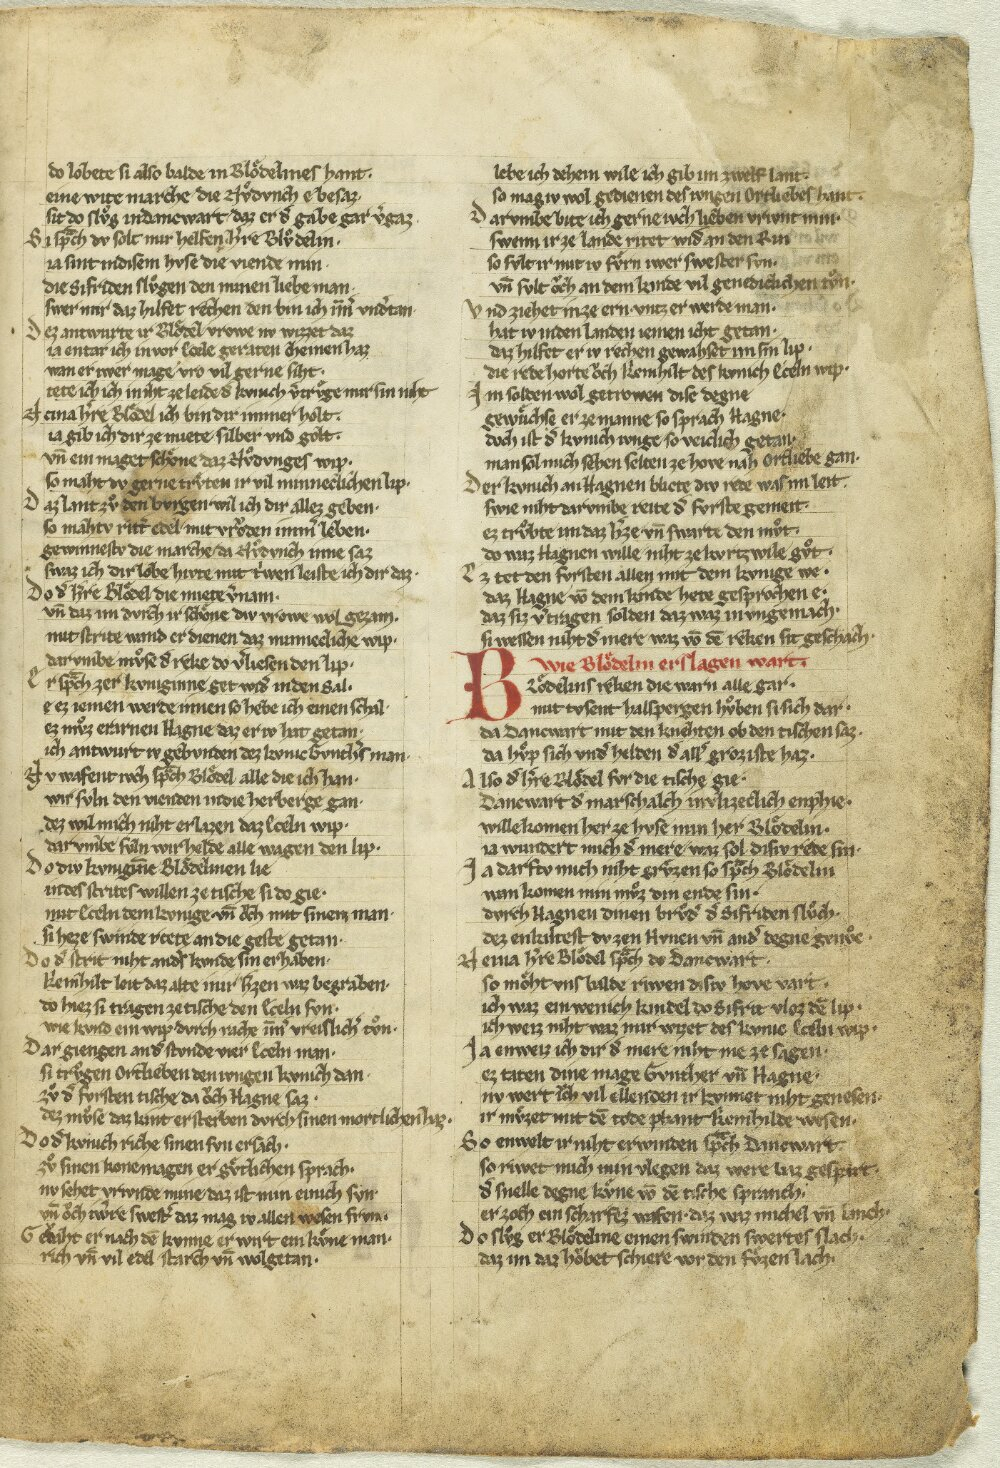 do lobete si also balde in Blŏdelines hant·
eine wite marche die Nŏdvnch e besaz
sit do slvͦg in dancwart daz er d̾ gabe gar v̾gaz
Si sp̾ch dv solt mir helfen h̾re Blŏdelin·
ia sint in disem hvse die viende min·
die Sifriden slvͦgen den minen liebe man·
swer mir daz hilfet rechen den bin ich im̾ vnd̾tan·
Dez antwurte ir Blŏdel vrowe nv wizzet daz
ia entar ich in vor Eceln geraten cheinen haz
wan er iwer mage vro vil gerne siht·
tete ich ich in iht ze leide d̾ kvnich v̾trvͤge mir sin niht
Neina h̾re Blŏdel ich bin dir immer holt·
ia gib ich dir ze miete silber vnd golt·
vn̄ ein maget schŏne daz Nŏdvnges wip·
so maht dv gerne trŏten ir vil minneclichen lip·
Daz lant zvͦ den bvrgen wil ich dir allez geben·
so mahtv ritt̾ edel mit vrŏden im̾ leben·
gewinnestv die marche da Nŏdvnch inne saz
swaz ich dir lobe hivte mit triwen leiste ich dir daz·
Do d̾ h̾re Blŏdel die miete v̾nam·
vn̄ daz im dvrch ir schŏne div vrowe wol gezam·
mit strite wand er dienen daz minnecliche wip·
darvmbe mvͦse d̾ reke do v̾liesen den lip·
Er sp̾ch zer kvniginne get wid̾ in den sal·
e ez iemen werde innen so hebe ich einen schal
ez mvͦz erarnen Hagne daz er iv hat getan·
ich antwurt iv gebvnden dez kvnic Gvnth̾s man·
Nv wafent ivch sp̾ch Blŏdel alle die ich han·
wir svln den vienden in die herberge gan·
dez wil mich niht erlazen daz Eceln wip·
darvmbe svln wir helde alle wagen den lip·
Do div kvnigin̄e Blŏdelinen lie
in des strites willen ze tische si do gie·
mit Eceln dem kvnige vn̄ ŏch mit sinen man·
si heze swinde rete an die geste getan·
Do d̾ strit niht and̾s kvnde sin erhaben·
Kriemhilt leit daz alte in ir h̾zen waz begraben·
do hiez si tragen ze tische den Eceln svn·
wie kvnd ein wip dvrch rache im̄̾ vreislich̾ tvͦn·
Dar giengen and̾ stvnde vier Eceln man·
si trvͦgen Ortlieben den ivngen kvnich dan·
zvͦ d̾ fvrsten tische da ŏch Hagne saz·
dez mvͦse daz kint ersterben dvrch sinen mortlichen haz·
Do d̾ kvnich riche sinen svn ersach·
zvͦ sinen konemagen er gvͤtlichen sprach·
nv sehet vrivnde mine daz ist min einich svn
vn̄ ŏch iwere swest̾ daz mag iv allen wesen frvm·
Gevæht er nach dē kvnne er wirt ein kvͤne man·
rich vn̄ vil edel starch vn̄ wolgetan·
lebe ich dehein wile ich gib im zwelf lant·
so mag iv wol gedienen des ivngen Ortliebes hant·
Darvmbe bite ich gerne ivch lieben vrivnt min·
swenn ir ze lande ritet wid̾ an den Rin
so svlt ir mit iv fvͤrn iwer swester svn·
vn̄ svlt ŏch an dem kinde vil genediclichen tvͦn·
Vnd ziehet in ze ern vntz er werde man·
hat iv in den landen iemen iht getan·
daz hilfet er iv rechen gewahset im sin lip·
die rede horte ŏch Kriemhilt des kvnich Eceln wip·
Im solden wol getrowen dise degne
gewŭchse er ze manne so sprach Hagne·
doch ist d̾ kvnich ivnge so veiclich getan·
man sol mich sehen selten ze hove nāh Ortliebe gan·
Der kvnich an Hagnen blicte div rede was im leit·
swie niht darvmbe reite d̾ fvrste gemeit·
ez trvͦbte im daz h̾ze vn̄ swarte den mvͦt·
do waz Hagnen wille niht ze kvrtzwile gvͦt·
Ez tet den fvrsten allen mit dem kvnige we·
daz Hagne vō dem kinde hete gesprochen e·
daz siz v̾tragen solden daz waz in vngemach·
si wessen niht d̾ mere waz vō dē reken sit geschach·
Wie Blŏdelin erslagen wart·
Blŏdelins reken die warn alle gar·
mit tvsent halspergen hvͦben si sich dar·
da Dancwart mit den knehten ob den tischen saz·
da hvͦp sich vnd̾ helden d̾ all̾ groziste haz·
Also d̾ h̾re Blŏdel fvr die tische gie·
Dancwart d̾ marschalch in vlizeclich enphie·
willekomen her ze hvse min her Blŏdelin·
ia wundert mich d̾ mere waz sol disiv rede sin·
Ja darftv mich niht grvͤzen so sp̾ch Blŏdelin
wan komen min mvͦz din ende sin·
dvrch Hagnen dinen brvͦd̾ d̾ Sifriden slvͦch·
dez enkiltest dv zen Hvnen vn̄ and̾ degne genvͦc·
Neina h̾re Blŏdel sp̾ch do Dancwart·
so mŏht vns balde riwen disiv hove vart·
ich waz ein wenich kindel do Sifrit vloz dē lip·
ich weiz niht waz mir wizet des kvnic Eceln wip·
Ja enweiz ich dir d̾ mere niht me ze sagen·
ez taten dine mage Gvnther vn̄ Hagne·
nv wert ivch vil ellenden ir kvnnet niht genesen·
ir mvͤzet mit dē tode phant Kriemhilde wesen·
So enwelt ir niht erwinden sp̾ch Dancwart·
so riwet mich min vlegen daz were baz gespart·
d̾ snelle degne kvͤne vō dē tische spranch·
er zoch ein scharfez wafen daz waz michel vn̄ lanch·
Do slvͦg er Blŏdeline einen swinden swertes slach·
daz im daz hŏbet schiere vor den fvͤzen lach·